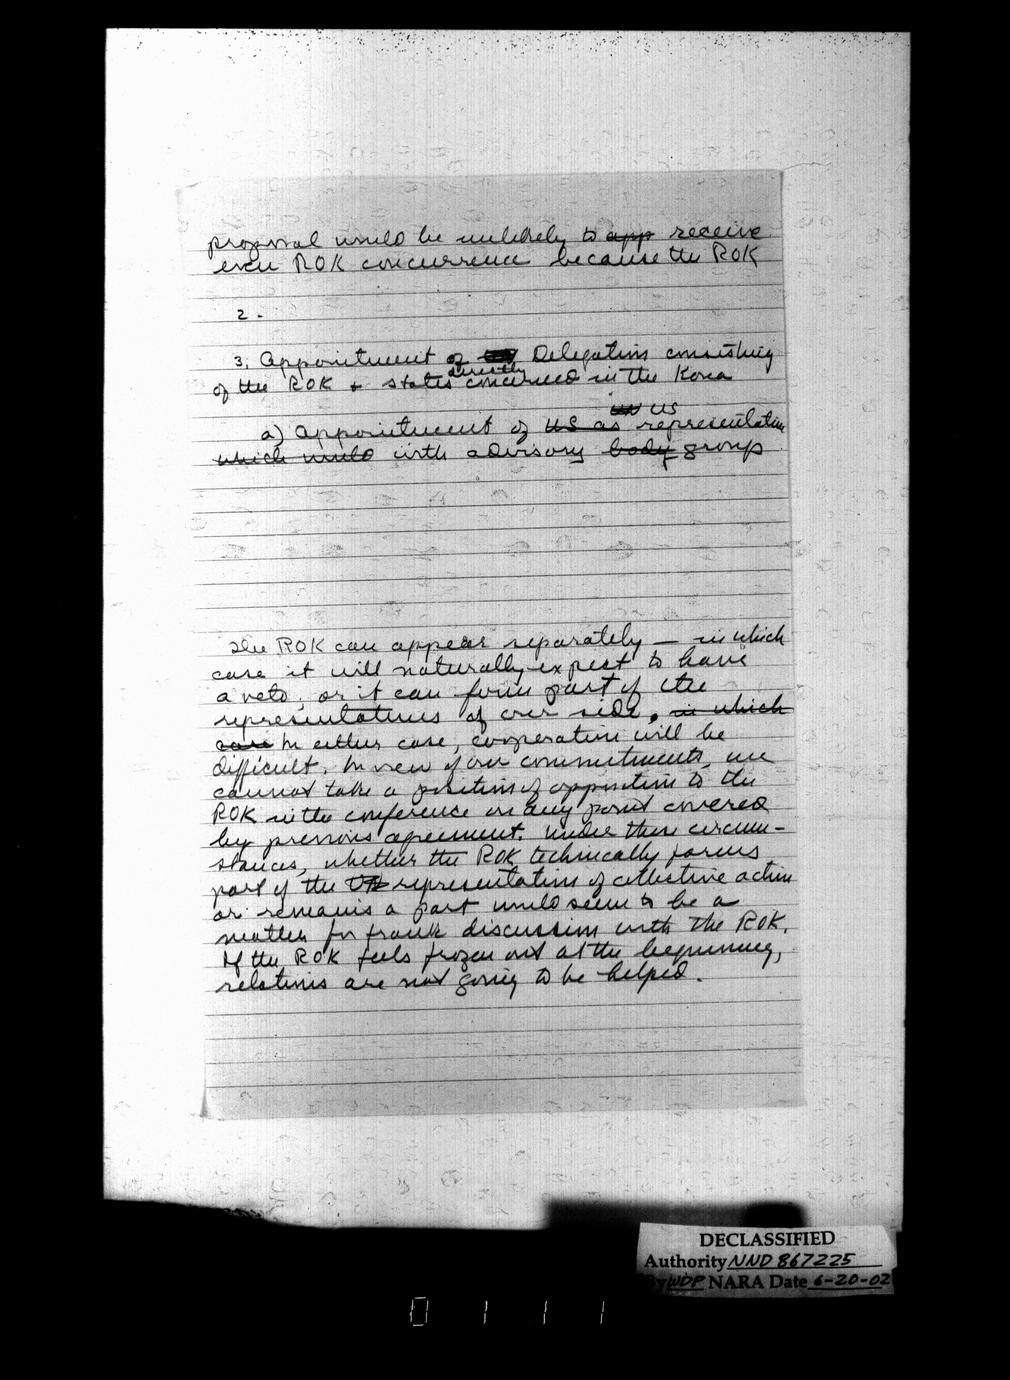 proposal would be unlikely to app receive
even ROK concurrence because the ROK
2.
3. Appointment of Delegation consisting
directly
of the ROK + states concerned in the Korea
UN US
a) Appointment of US as representation
which would with advisory body group
The ROK can appear separately — in which
case it will naturally expect to have
a veto, or it can form part of the
representations of our side, in which
case In either case, cooperation will be
difficult. In view of our commitments, we
cannot take a position of opposition to the
ROK in the conference on any point covered
by previous agreement. Under these circum-
stances, whether the ROK technically forms
part of the UN representation of collective action
or remains a part would seem to be a
matter for frank discussion with the ROK.
If the ROK feels frozen out at the beginning,
relations are not going to be helped.
DECLASSIFIED
Authority NND 867225
By WDP NARA Date 6-20-02
0111